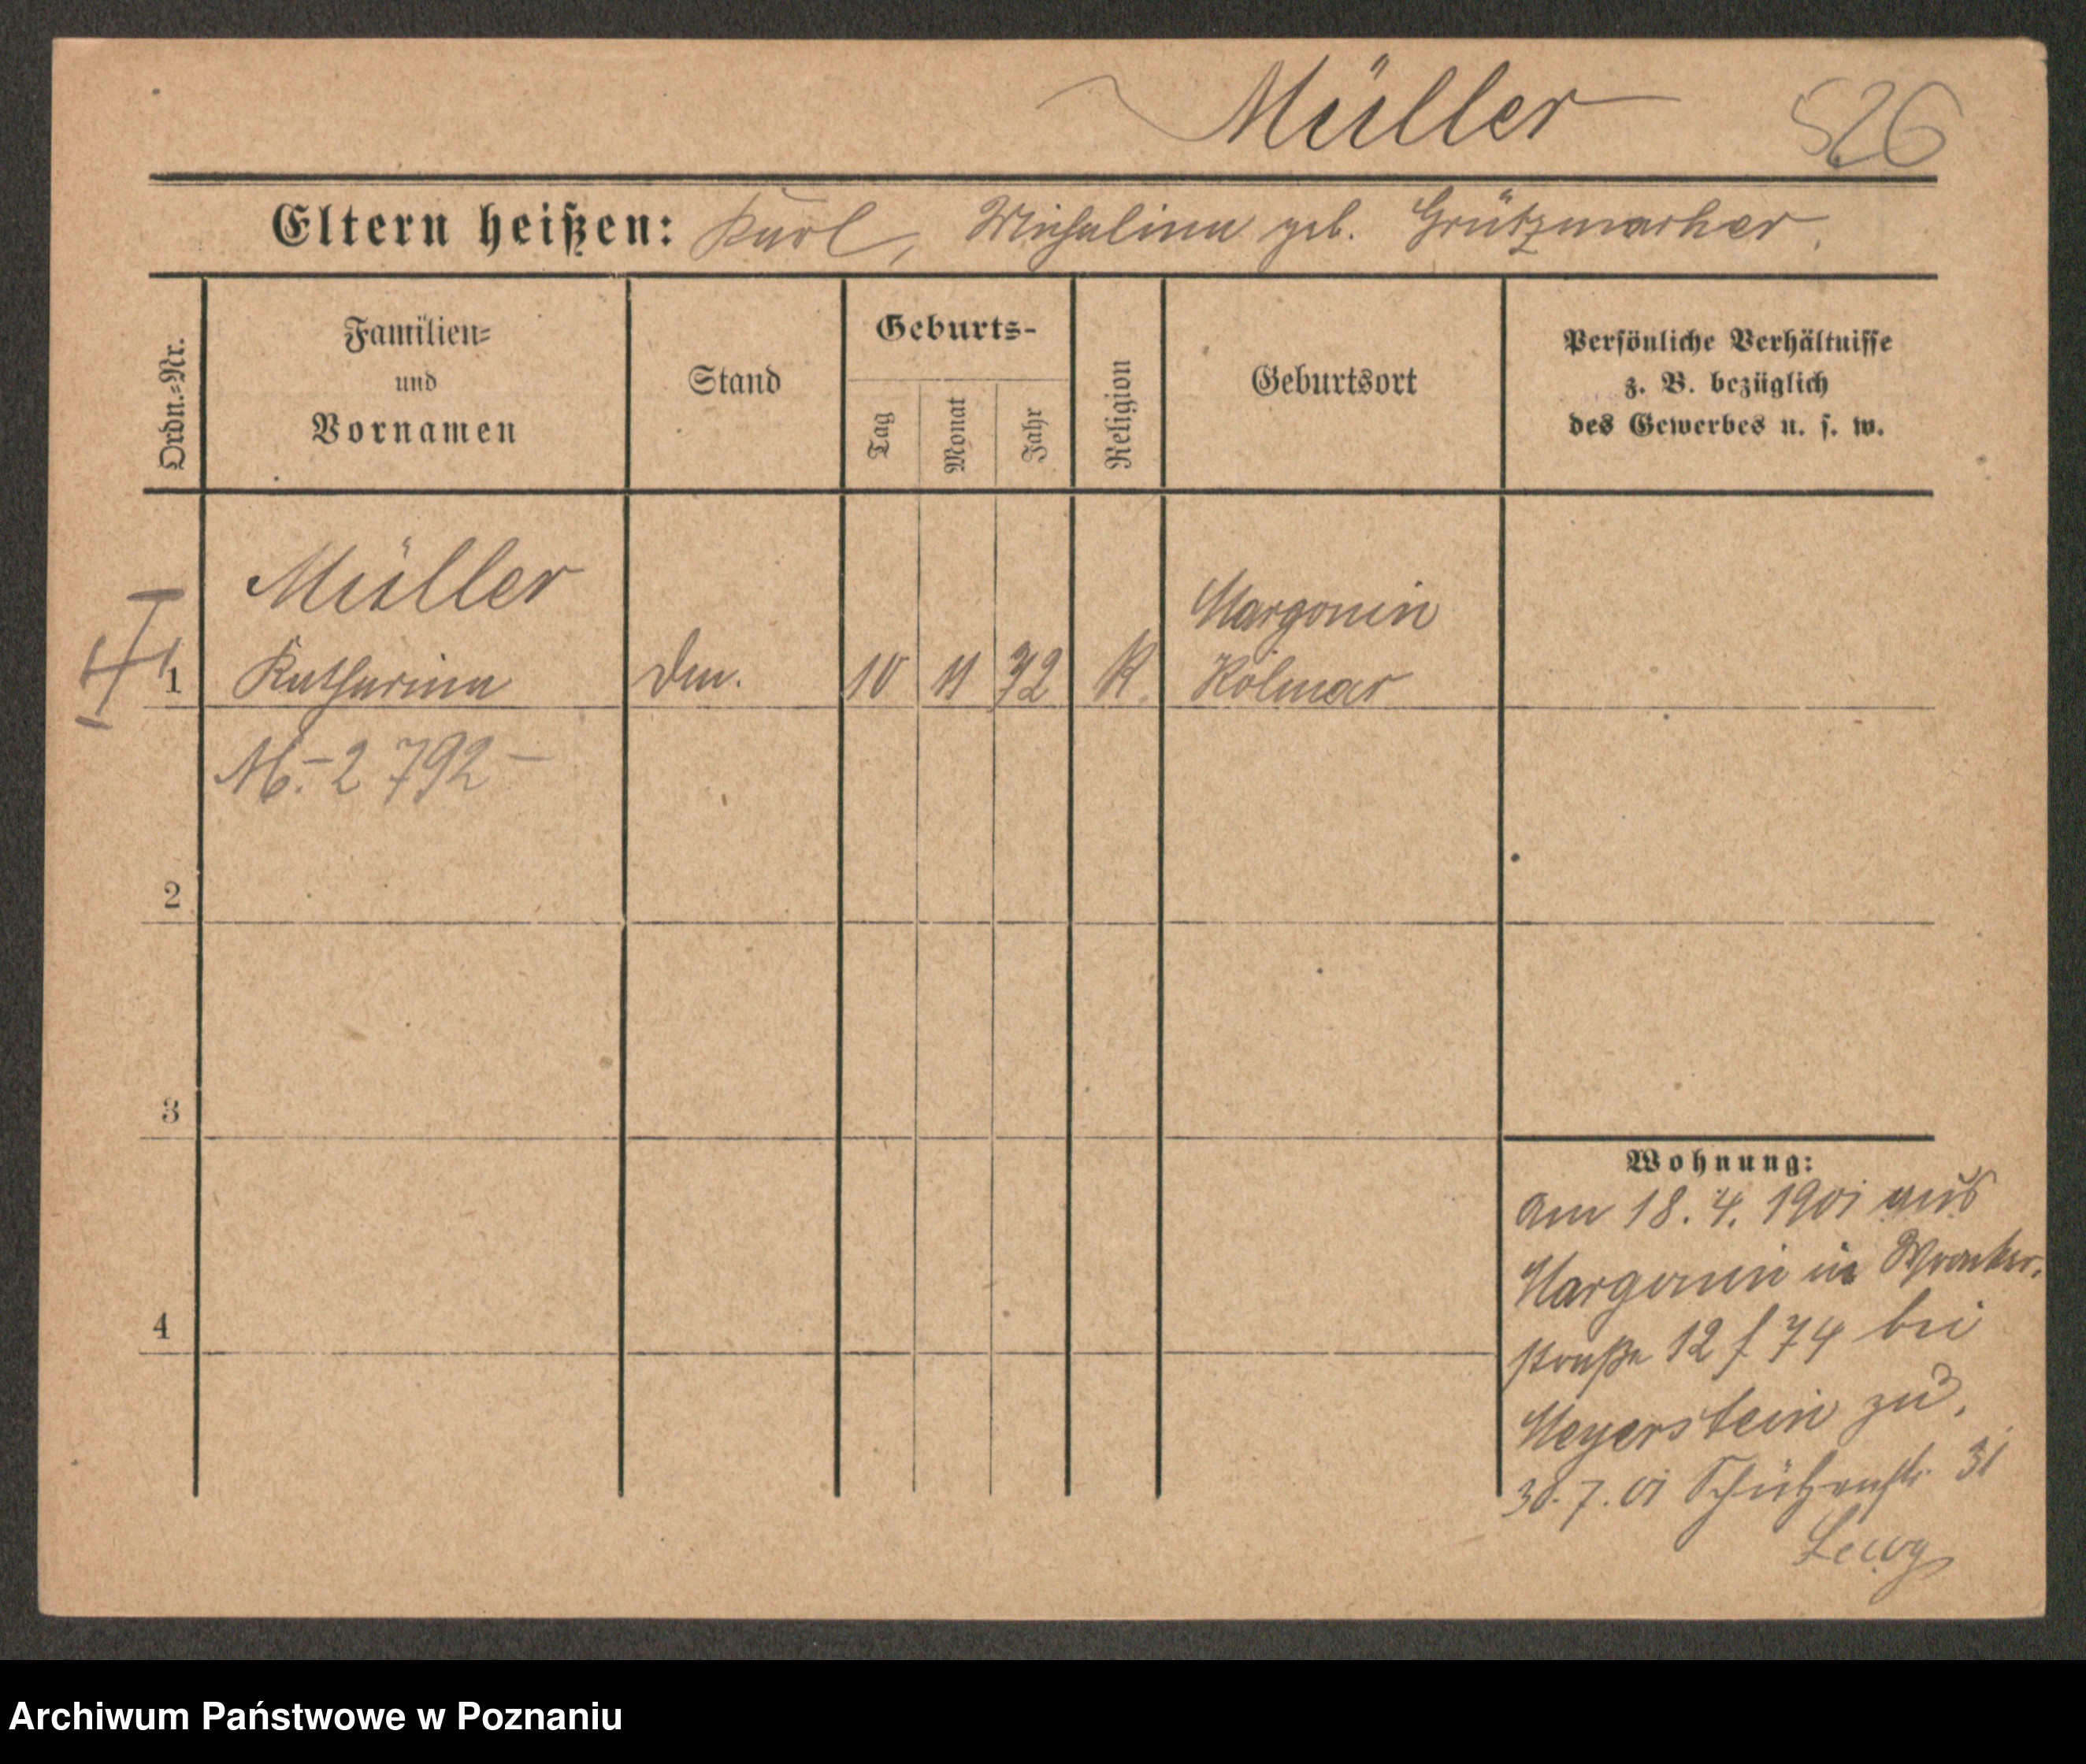 Müller 526
Eltern heißen: Karl, Michalina geb. Grützmacher.
Ordn.=Nr.
Familien=
und
Vornamen
Stand
Geburts-
Tag
Monat
Jahr
Religion
Geburtsort
Persönliche Verhältnisse
z. B. bezüglich
des Gewerbes u. s. w.
Müller
Margonin
1 Katharina 10 11 72 K. Kolmar
M.-2 792-
2
3
4
Wohnung:
am 18. 4. 1901 aus
Margonin in Wronker-
straße 12 f 74 bei
Meyerstein zu.
30. 7. 01 Schützenstr. 31